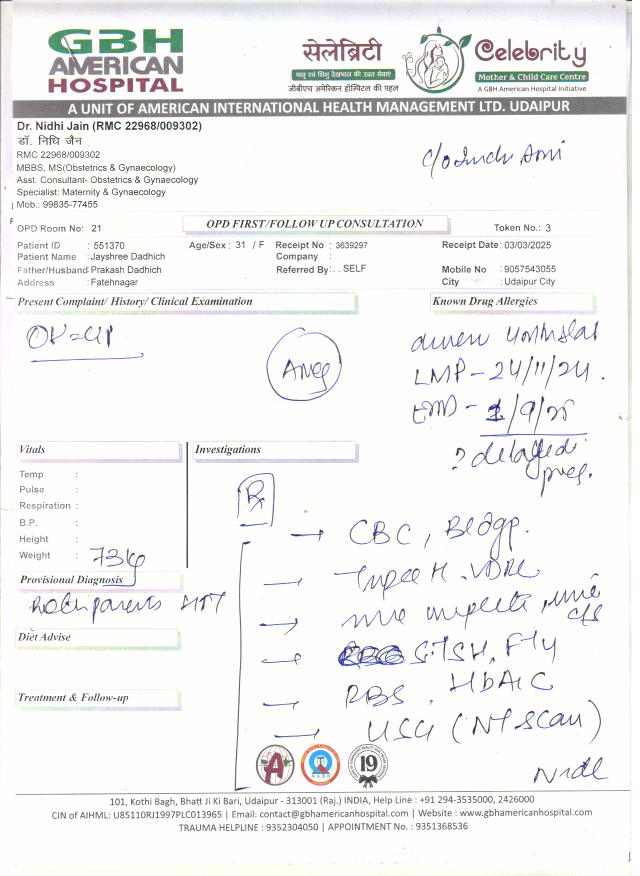 GBH
AMERICAN
HOSPITAL
सेलेब्रिटी
मातृ एवं शिशु देखभाल की उन्नत सेवाएं
जीबीएच अमेरिकन हॉस्पिटल की पहल
Celebrity
Mother & Child Care Centre
A GBH American Hospital Initiative
A UNIT OF AMERICAN INTERNATIONAL HEALTH MANAGEMENT LTD. UDAIPUR
Dr. Nidhi Jain (RMC 22968/009302)
डॉ. निधि जैन
RMC 22968/009302
MBBS, MS(Obstetrics & Gynaecology)
Asst. Consultant- Obstetrics & Gynaecology
Specialist: Maternity & Gynaecology
Mob.: 99835-77455
c/o
OPD Room No: 21
OPD FIRST/FOLLOW UP CONSULTATION
Token No.: 3
Patient ID : 551370 Age/Sex : 31 / F Receipt No : 3639297 Receipt Date: 03/03/2025
Patient Name : Jayshree Dadhich Company :
Father/Husband Prakash Dadhich Referred By: . . SELF Mobile No : 9057543055
Address : Fatehnagar City : Udaipur City
Present Complaint/ History/ Clinical Examination
Known Drug Allergies
LMP - 24/11/24
? delayed
preg.
Vitals
Investigations
Temp :
Pulse :
Respiration :
B.P. :
Height :
Weight : 73kg
Rx
→ CBC, Bldgp.
VDRL
urine
c/s
S.TSH,
RBS, HbA1C
→ USG (NT scan)
Provisional Diagnosis
Both parents
Diet Advise
Treatment & Follow-up
A
NABH
19
101, Kothi Bagh, Bhatt Ji Ki Bari, Udaipur - 313001 (Raj.) INDIA, Help Line : +91 294-3535000, 2426000
CIN of AIHML: U85110RJ1997PLC013965 | Email: contact@gbhamericanhospital.com | Website : www.gbhamericanhospital.com
TRAUMA HELPLINE : 9352304050 | APPOINTMENT No. : 9351368536